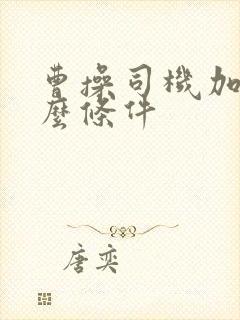 曹操司機加
麼條件
唐奕